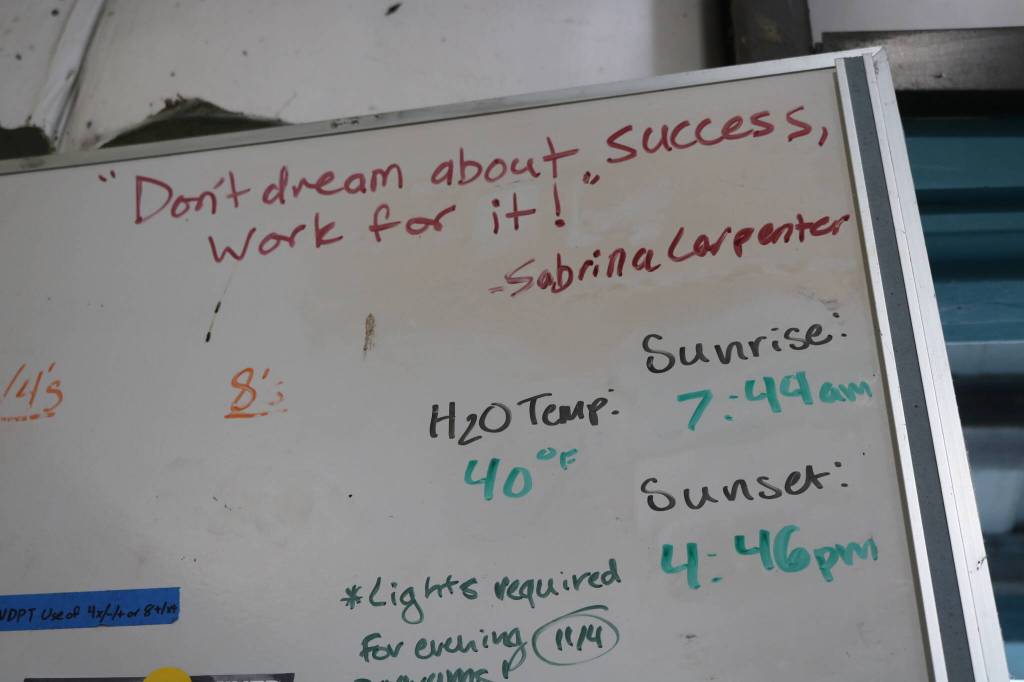 "Don't dream about success,
work for it!"
-Sabrina Carpenter
/4's
8's
Sunrise:
7:44am
H2O Temp:
40°F
Sunset:
4:46pm
*Lights required
for evening 11/4
Use of 4x/-/+ or 8+/x+